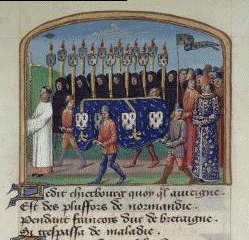 Ledit chierbourg quoy ql auiegne.
Est des plusfors de normandie.
Pendant francoys duc de bretaigne.
Si trespassa de maladie.